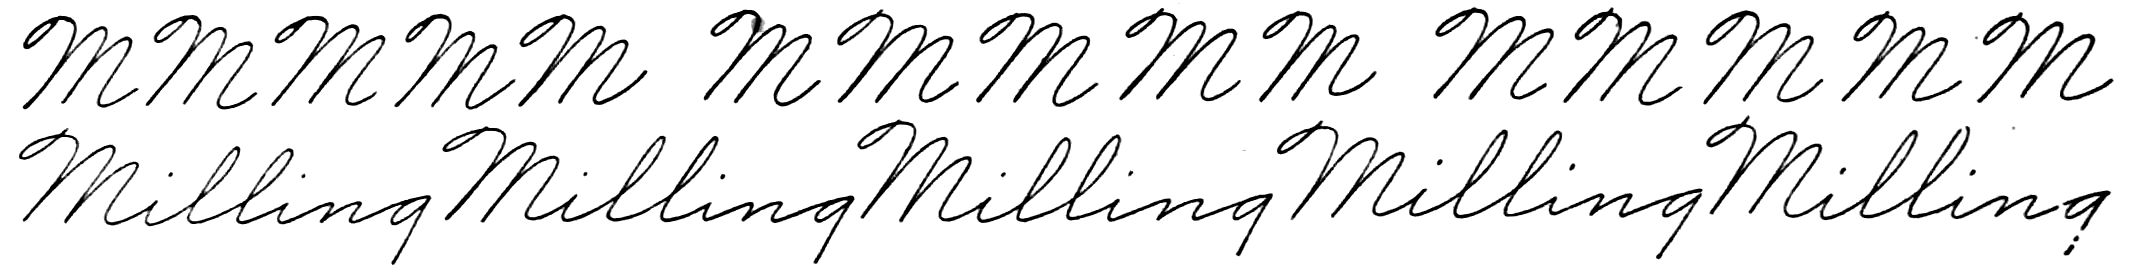 M M M M M M M M M M M M M M M
Milling Milling Milling Milling Milling